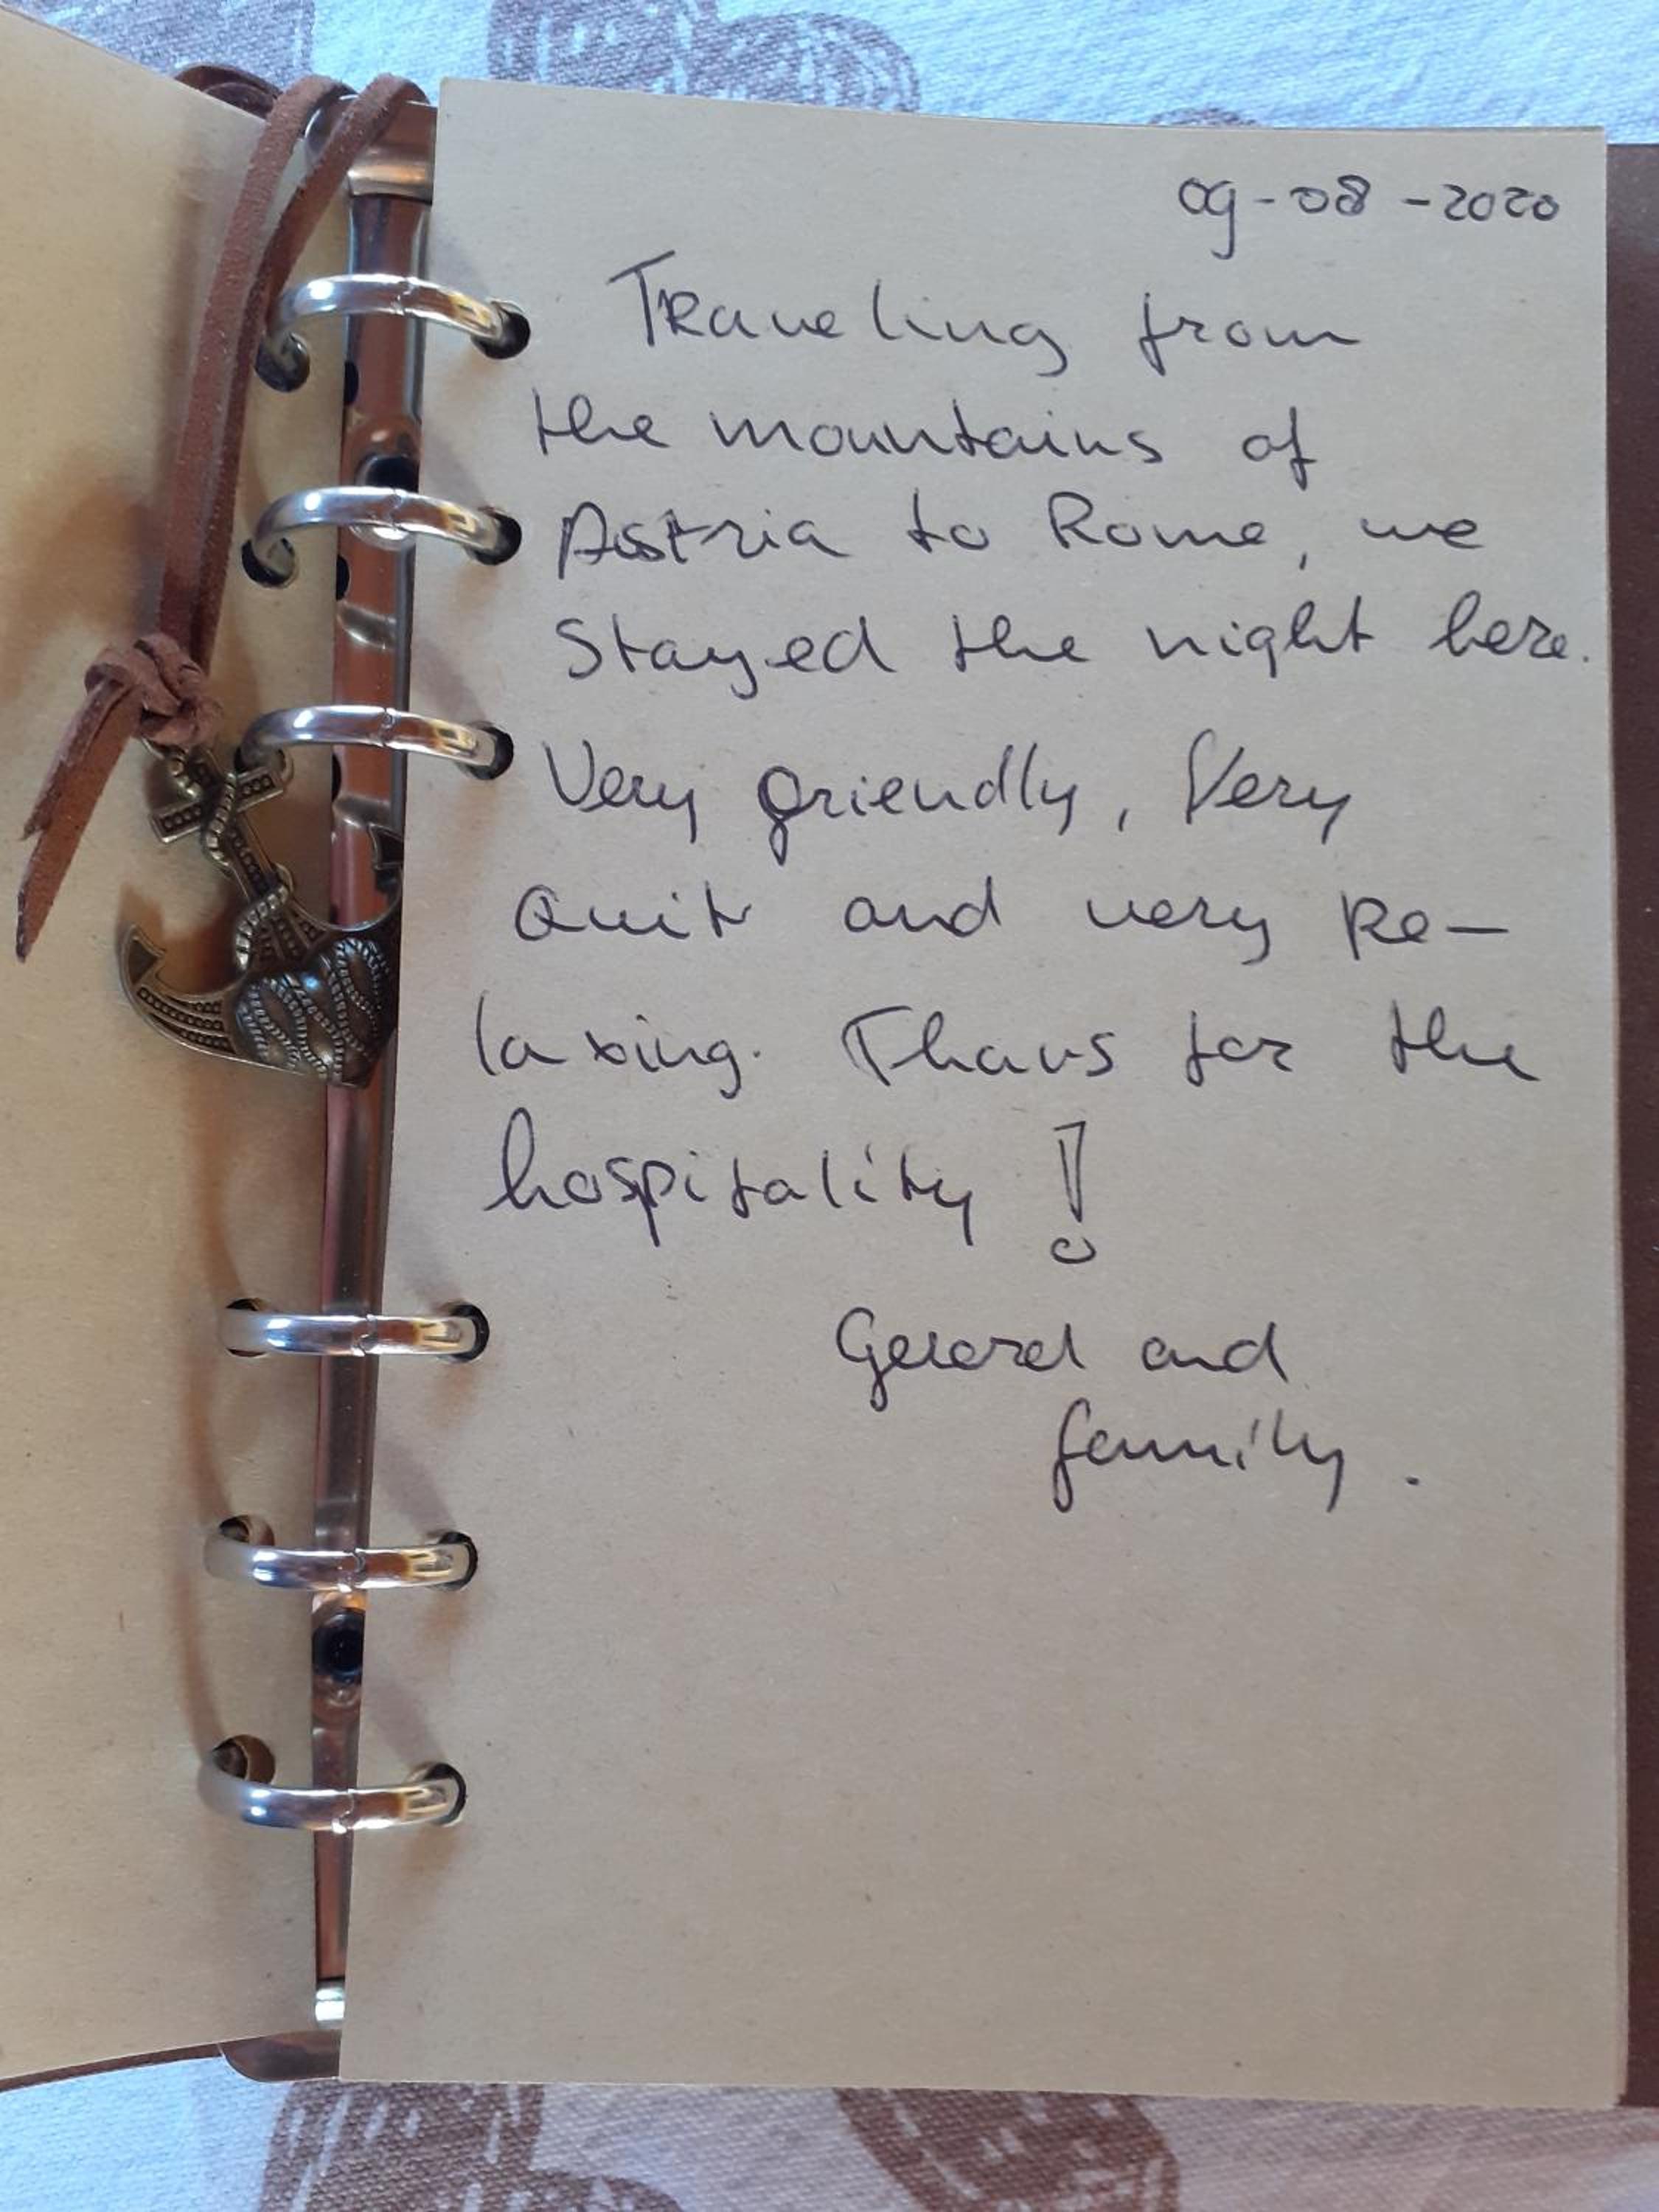 09-08-2020
Traveling from
the mountains of
Astria to Rome, we
Stayed the night here.
Very friendly, Very
Quit and very Re-
laxing. Thans for the
hospitality !
Gerard and
family.